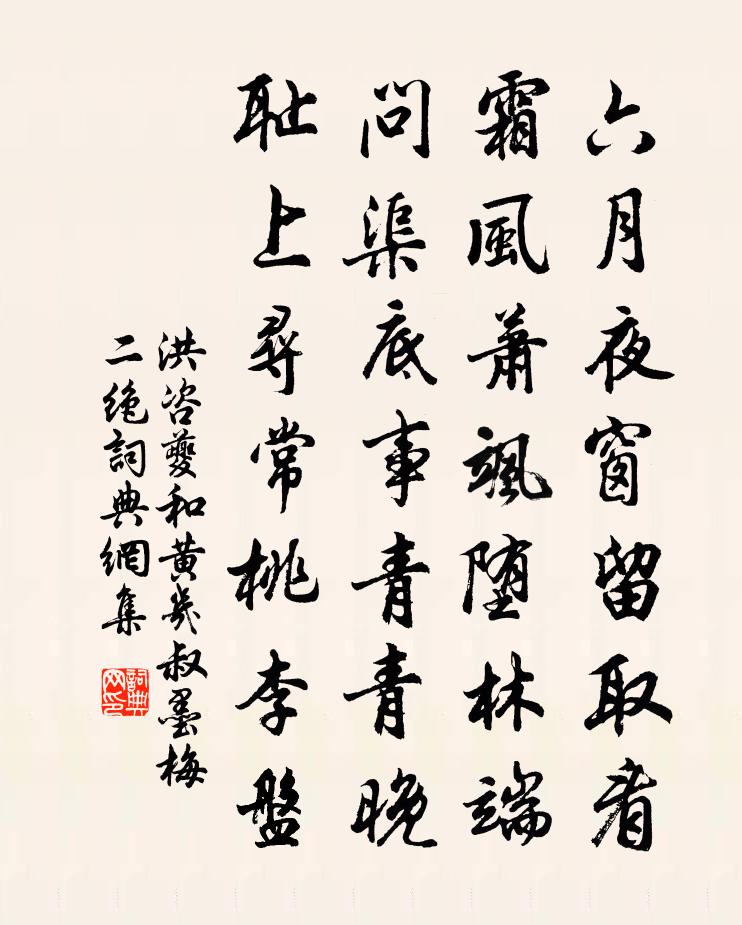 六月夜窗留取看
霜風蕭颯堕林端
問渠底事青青晚
耻上尋常桃李盤
洪咨夔和黄㡬叔墨梅
二绝詞典網集
詞典网印